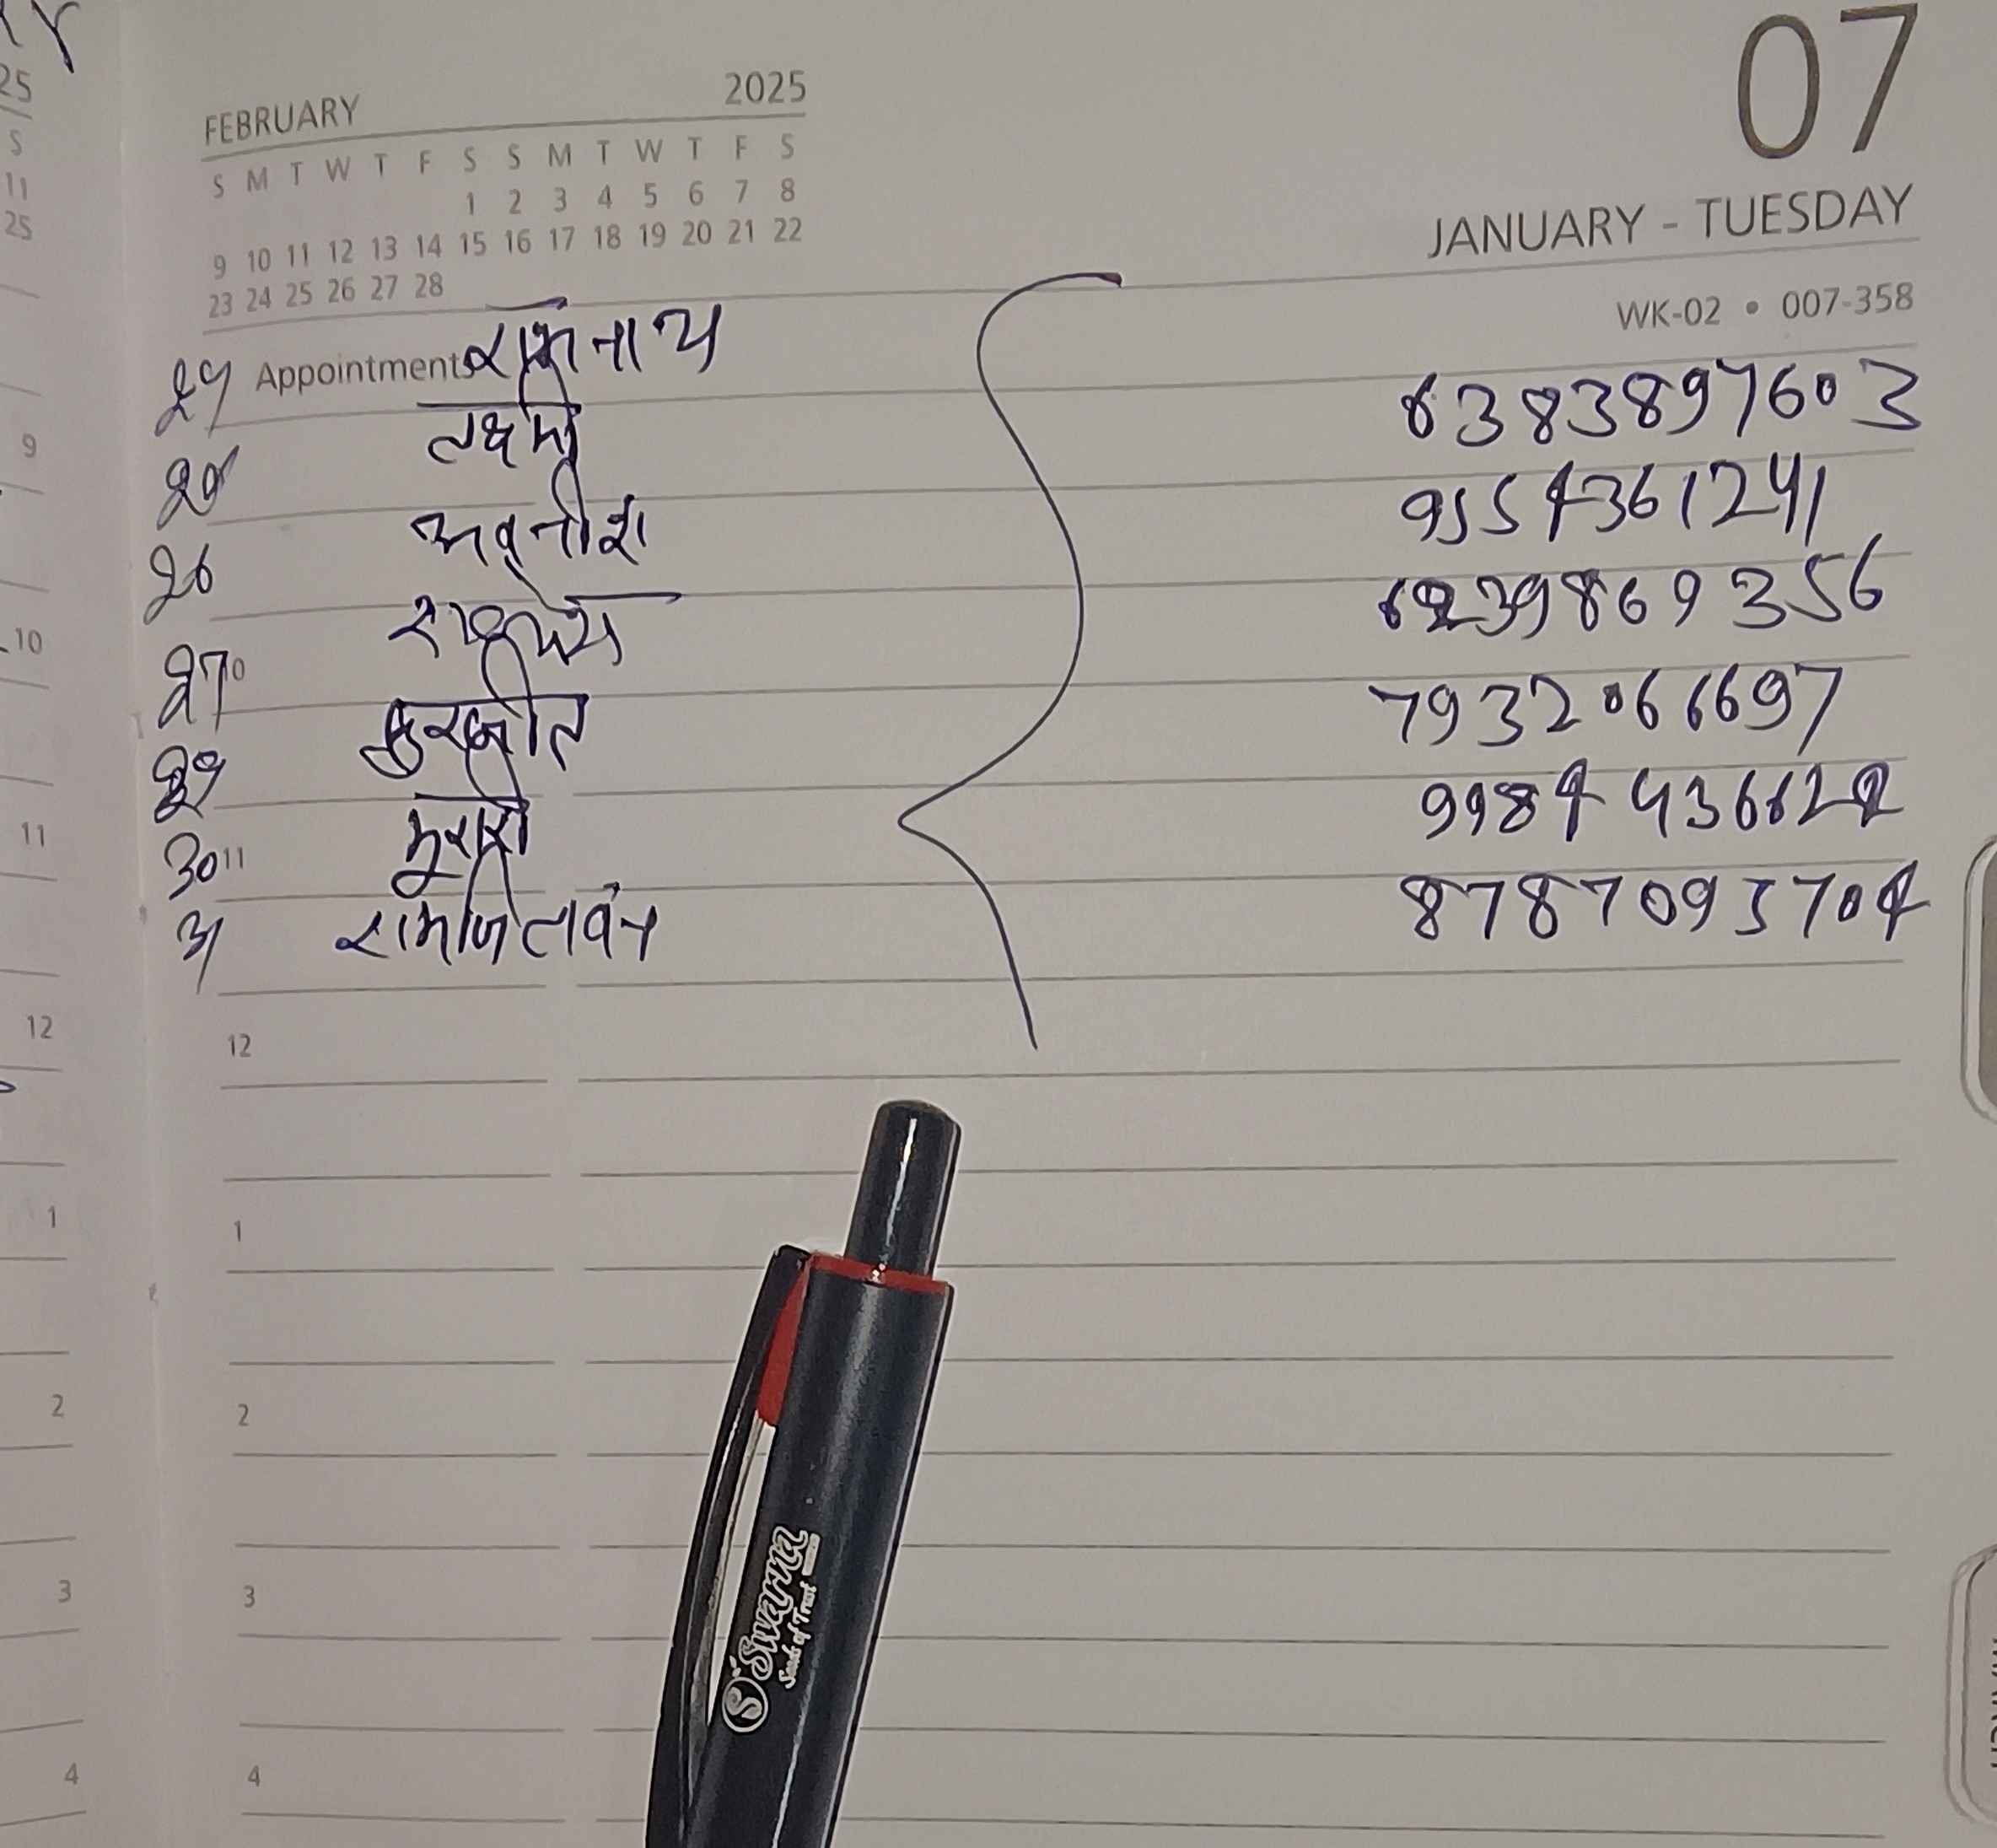 25
S
11
25
9
10
11
12
1
2
3
4
07
FEBRUARY 2025
S M T W T F S S M T W T F S
1 2 3 4 5 6 7 8
9 10 11 12 13 14 15 16 17 18 19 20 21 22
23 24 25 26 27 28
JANUARY - TUESDAY
WK-02 • 007-358
Appointments रामनाथ 6383897603
लक्ष्मी 9554361241
26 अवनीश 6239869356
27 10 7932066697
29 सुरजीत 9984436622
30 11 मुरारी 8787093704
31 रामजितावन
12
1
2
3
4
Swarna
Seeds of Trust